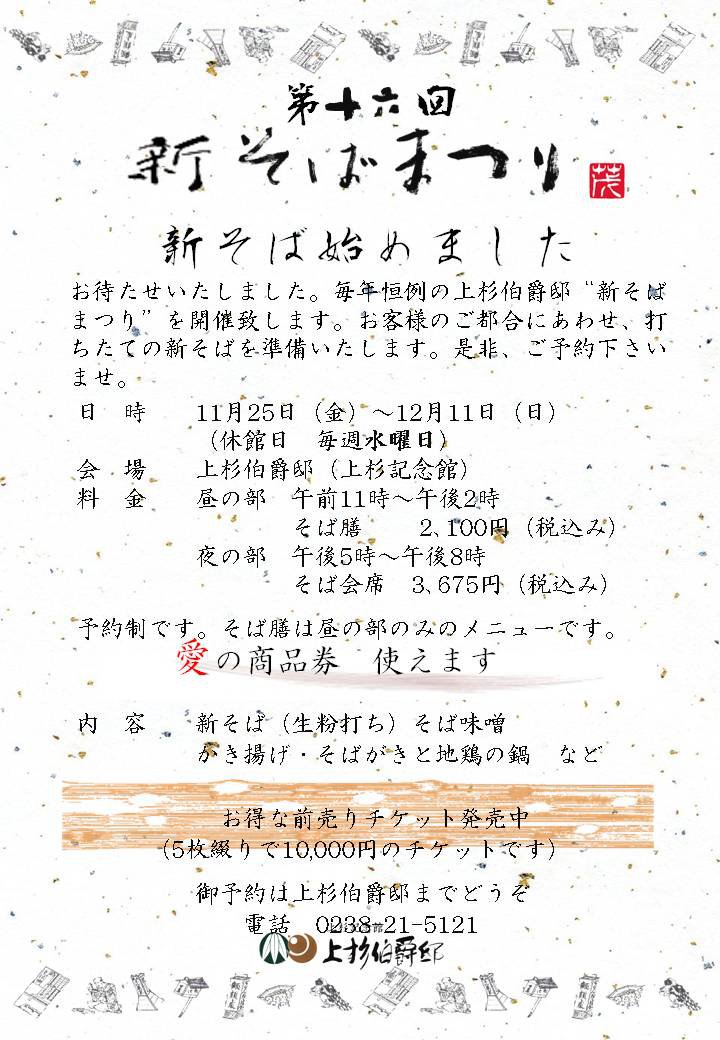 第十六回
新そばまつり
茂
新そば始めました
お待たせいたしました。毎年恒例の上杉伯爵邸“新そば
まつり”を開催致します。お客様のご都合にあわせ、打
ちたての新そばを準備いたします。是非、ご予約下さい
ませ。
日　時　11月25日（金）～12月11日（日）
（休館日　毎週水曜日）
会　場　上杉伯爵邸（上杉記念館）
料　金　昼の部　午前11時～午後2時
そば膳　2、100円（税込み）
夜の部　午後5時～午後8時
そば会席　3、675円（税込み）
予約制です。そば膳は昼の部のみのメニューです。
愛の商品券　使えます
内　容　新そば（生粉打ち）そば味噌
かき揚げ・そばがきと地鶏の鍋　など
お得な前売りチケット発売中
（5枚綴りで10,000円のチケットです）
御予約は上杉伯爵邸までどうぞ
電話　0238-21-5121
上杉伯爵邸